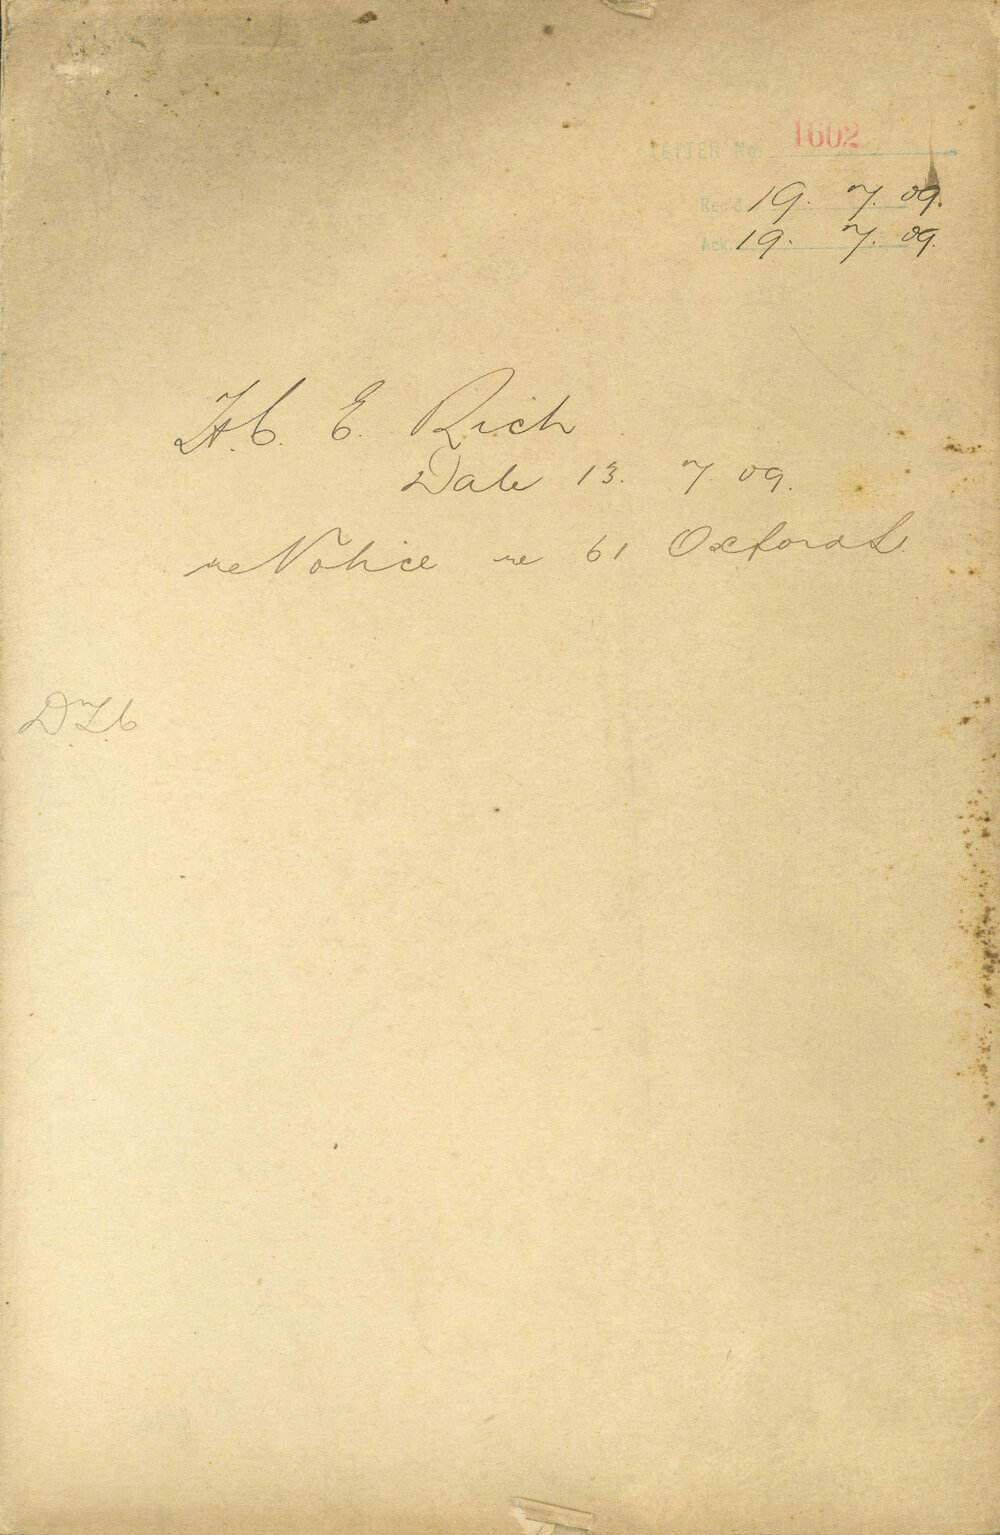 LETTER No. 1602
Rec'd 19. 7. 09.
Ack. 19. 7. 09.
H.C. E. Rich
Date 13. 7. 09.
re Notice re 61 Oxford St